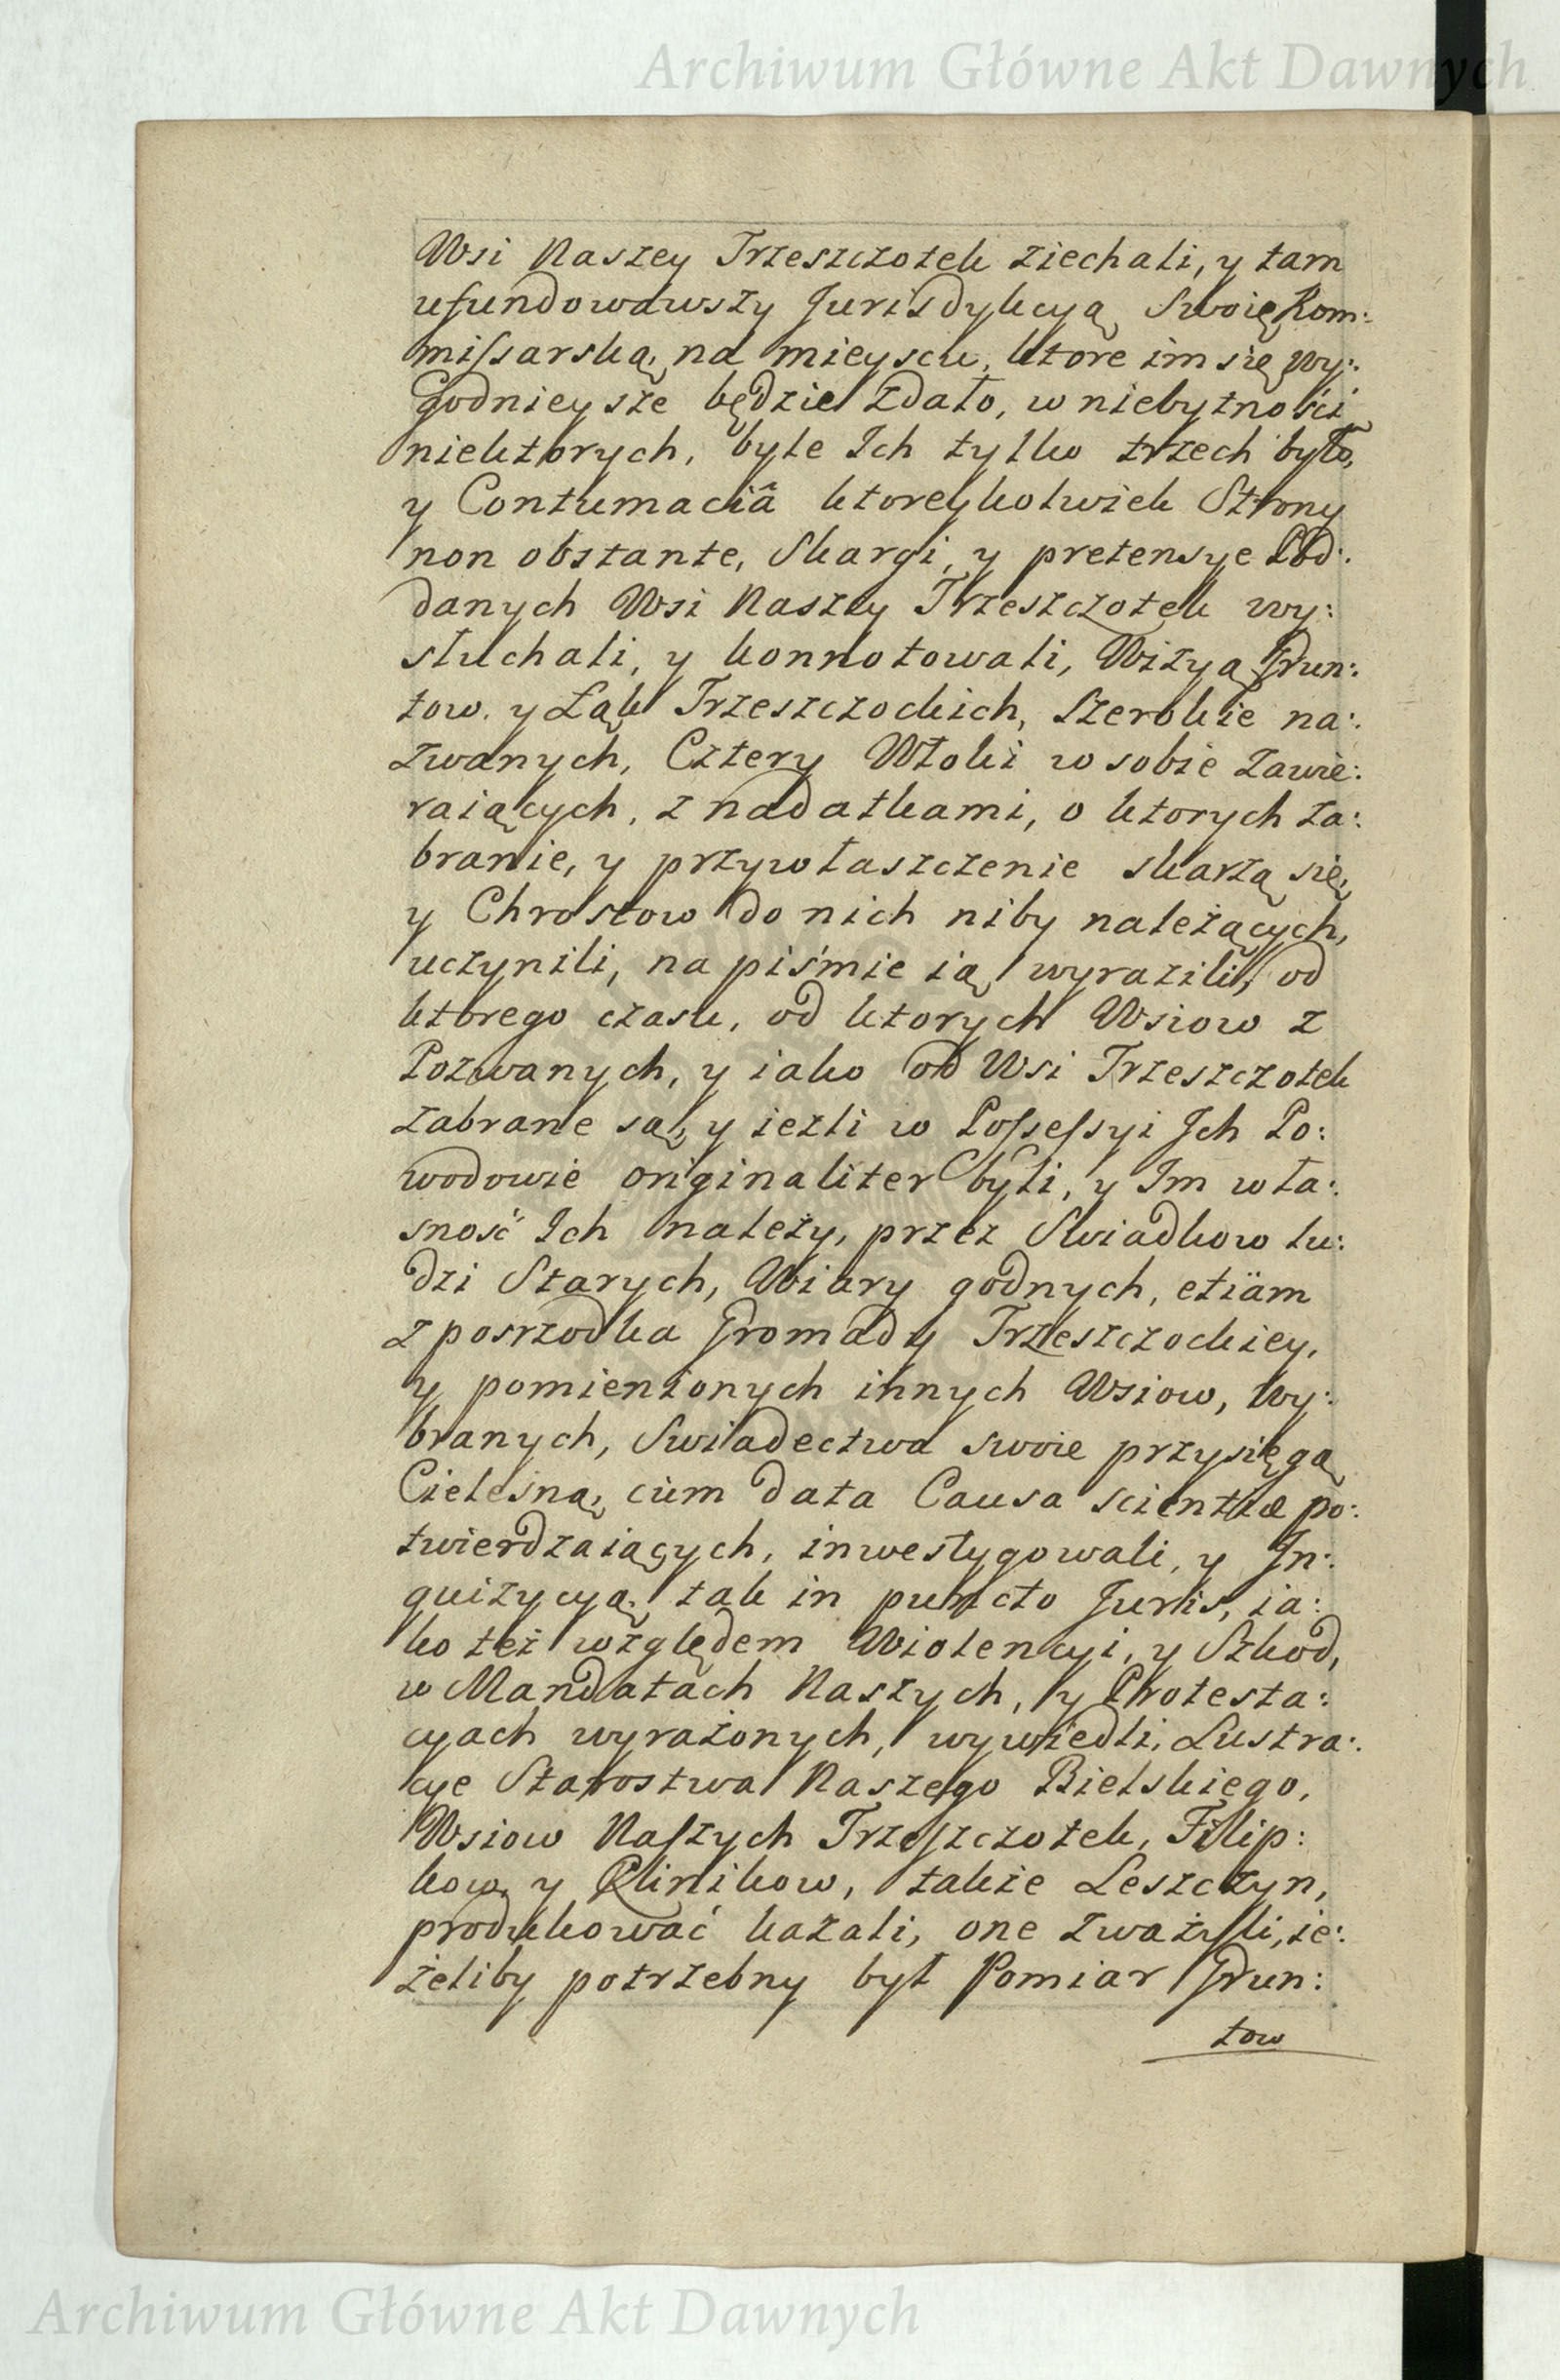 Archiwum Główne Akt Dawnych
Wsi Naszey Trzeszczotek ziechali, y tam
ufundowawszy Jurisdykcyą Swoię Kom:
mißarską, na mieyscu, ktore im się wy:
godnieysze będzie zdało, w niebytności
niektorych, byle Ich tylko trzech było,
y Contumaciâ ktoreykolwiek Strony
non obstante, Skargi, y pretensye Pod:
danych Wsi Naszey Trzeszczotek wy:
słuchali, y konnotowali, Wizyą Grun:
tow. y Łąk Trzeszczockich, Szerokie na:
zwanych, Cztery Włoki w sobie zawie:
raiących, z nadatkami, o ktorych za:
branie, y przywłaszczenie skarżą się,
y Chrostow do nich niby należących,
uczynili, na piśmie ią wyrazili, od
ktorego czasu, od ktorych Wsiow z
Pozwanych, y iako od Wsi Trzeszczotek
zabrane są, y ieżli w Poßeßyi Ich Po:
wodowie originaliter byli, y Im wła:
sność Ich należy, przez Swiadkow lu:
dzi Starych, Wiary godnych, etiäm
z posrzodka Gromady Trzeszczockiey,
y pomienionych innych Wsiow, wy:
branych, Swiadectwa swoie przysięgą
Cielesną, cum data Causa scientiæ po:
twierdzaiących, inwestygowali, y In:
quizycyą, tak in puncto Juris, ia:
ko też względem Wiolencyi, y Szkod,
w Mandatach Naszych, y Protesta:
cyach wyrażonych, wywiedli, Lustra:
cye Starostwa Naszego Bielskiego,
Wsiow Naszych Trzeszczotek, Filip:
kow, y Plinikow, takze Leszczyn,
produkować kazali, one zważyli, ie:
żeliby potrzebny był Pomiar Grun:
tow
Archiwum Główne Akt Dawnych